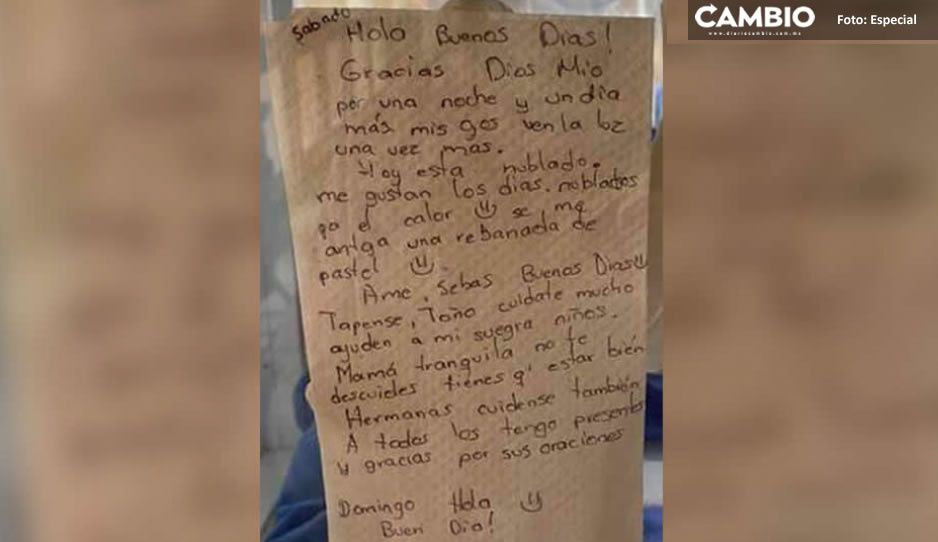 CAMBIO
www.diariocambio.com.mx
Foto: Especial
Sabado
Hola Buenos Dias!
Gracias Dios Mio
por una noche y un día
más mis ojos ven la luz
una vez mas.
Hoy esta nublado.
me gustan los dias. nublados
pa el calor se me
antoja una rebanada de
pastel
Ame, Sebas Buenos Dias
Tapense, Toño cuidate mucho
ayuden a mi suegra niños.
Mamá tranquila no te
descuides tienes q' estar bién
Hermanas cuidense también
A todos los tengo presentes
y gracias por sus oraciones
Domingo Hola
Buen Dia!